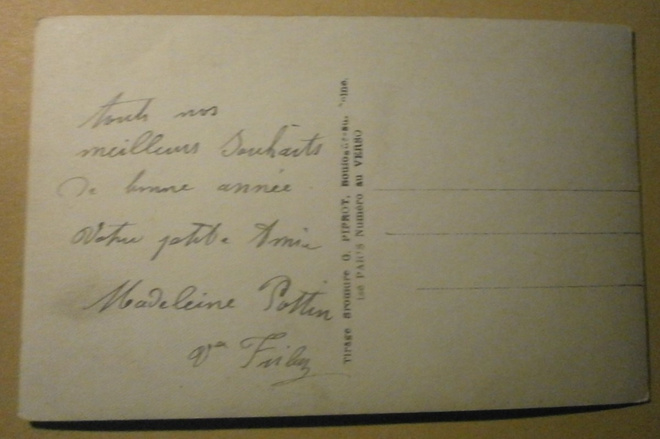 touts nos
meilleurs Souhaits
De bonne année
Votre petite Amie
Madeleine Pottin
Tirage Bromure O. PIPROT, Boulogne-sur-Seine.
PARIS Numéro au VERSO